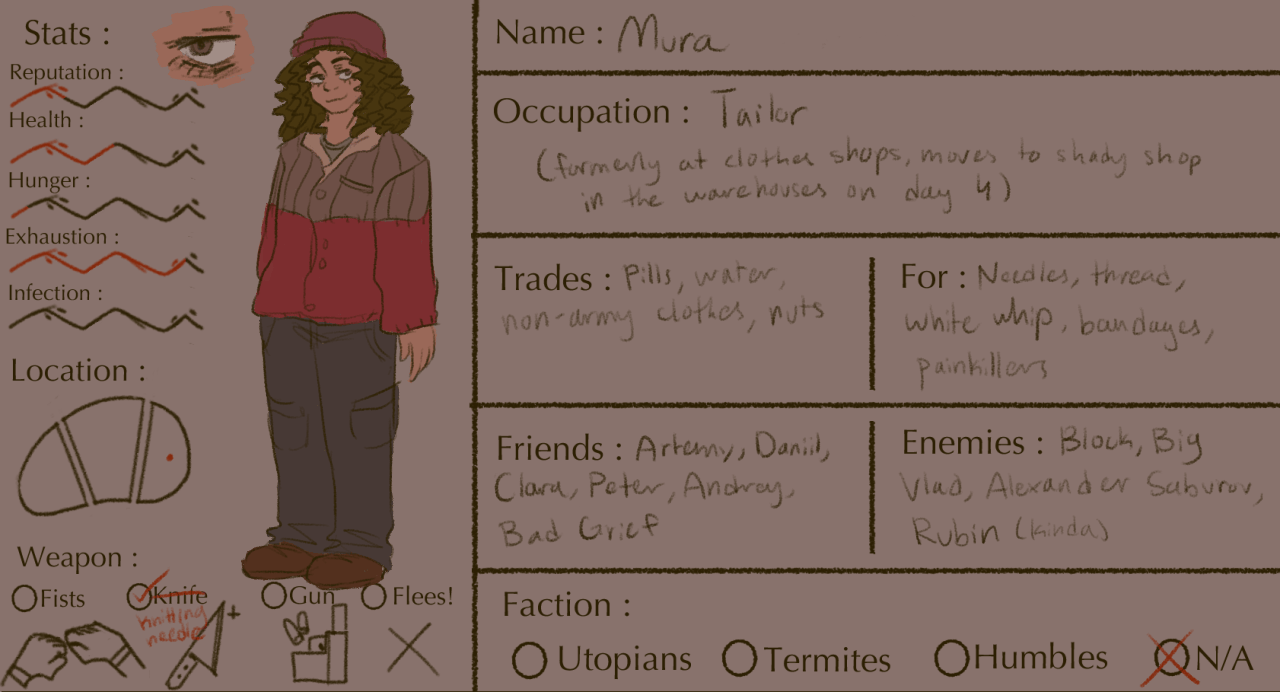 Stats :
Reputation :
Health :
Hunger :
Exhaustion :
Infection :
Location :
Weapon :
Fists
Knife
Gun
Flees!
knitting
needle
Name : Mura
Occupation : Tailor
(formerly at clothes shops, moves to shady shop
in the warehouses on day 4)
Trades : Pills, water,
non-army clothes, nuts
For : Needles, thread,
white whip, bandages,
painkillers
Friends : Artemy, Daniil,
Clara, Peter, Andrey,
Bad Grief
Enemies : Block, Big
Vlad, Alexander Saburov,
Rubin (kinda)
Faction :
Utopians
Termites
Humbles
N/A